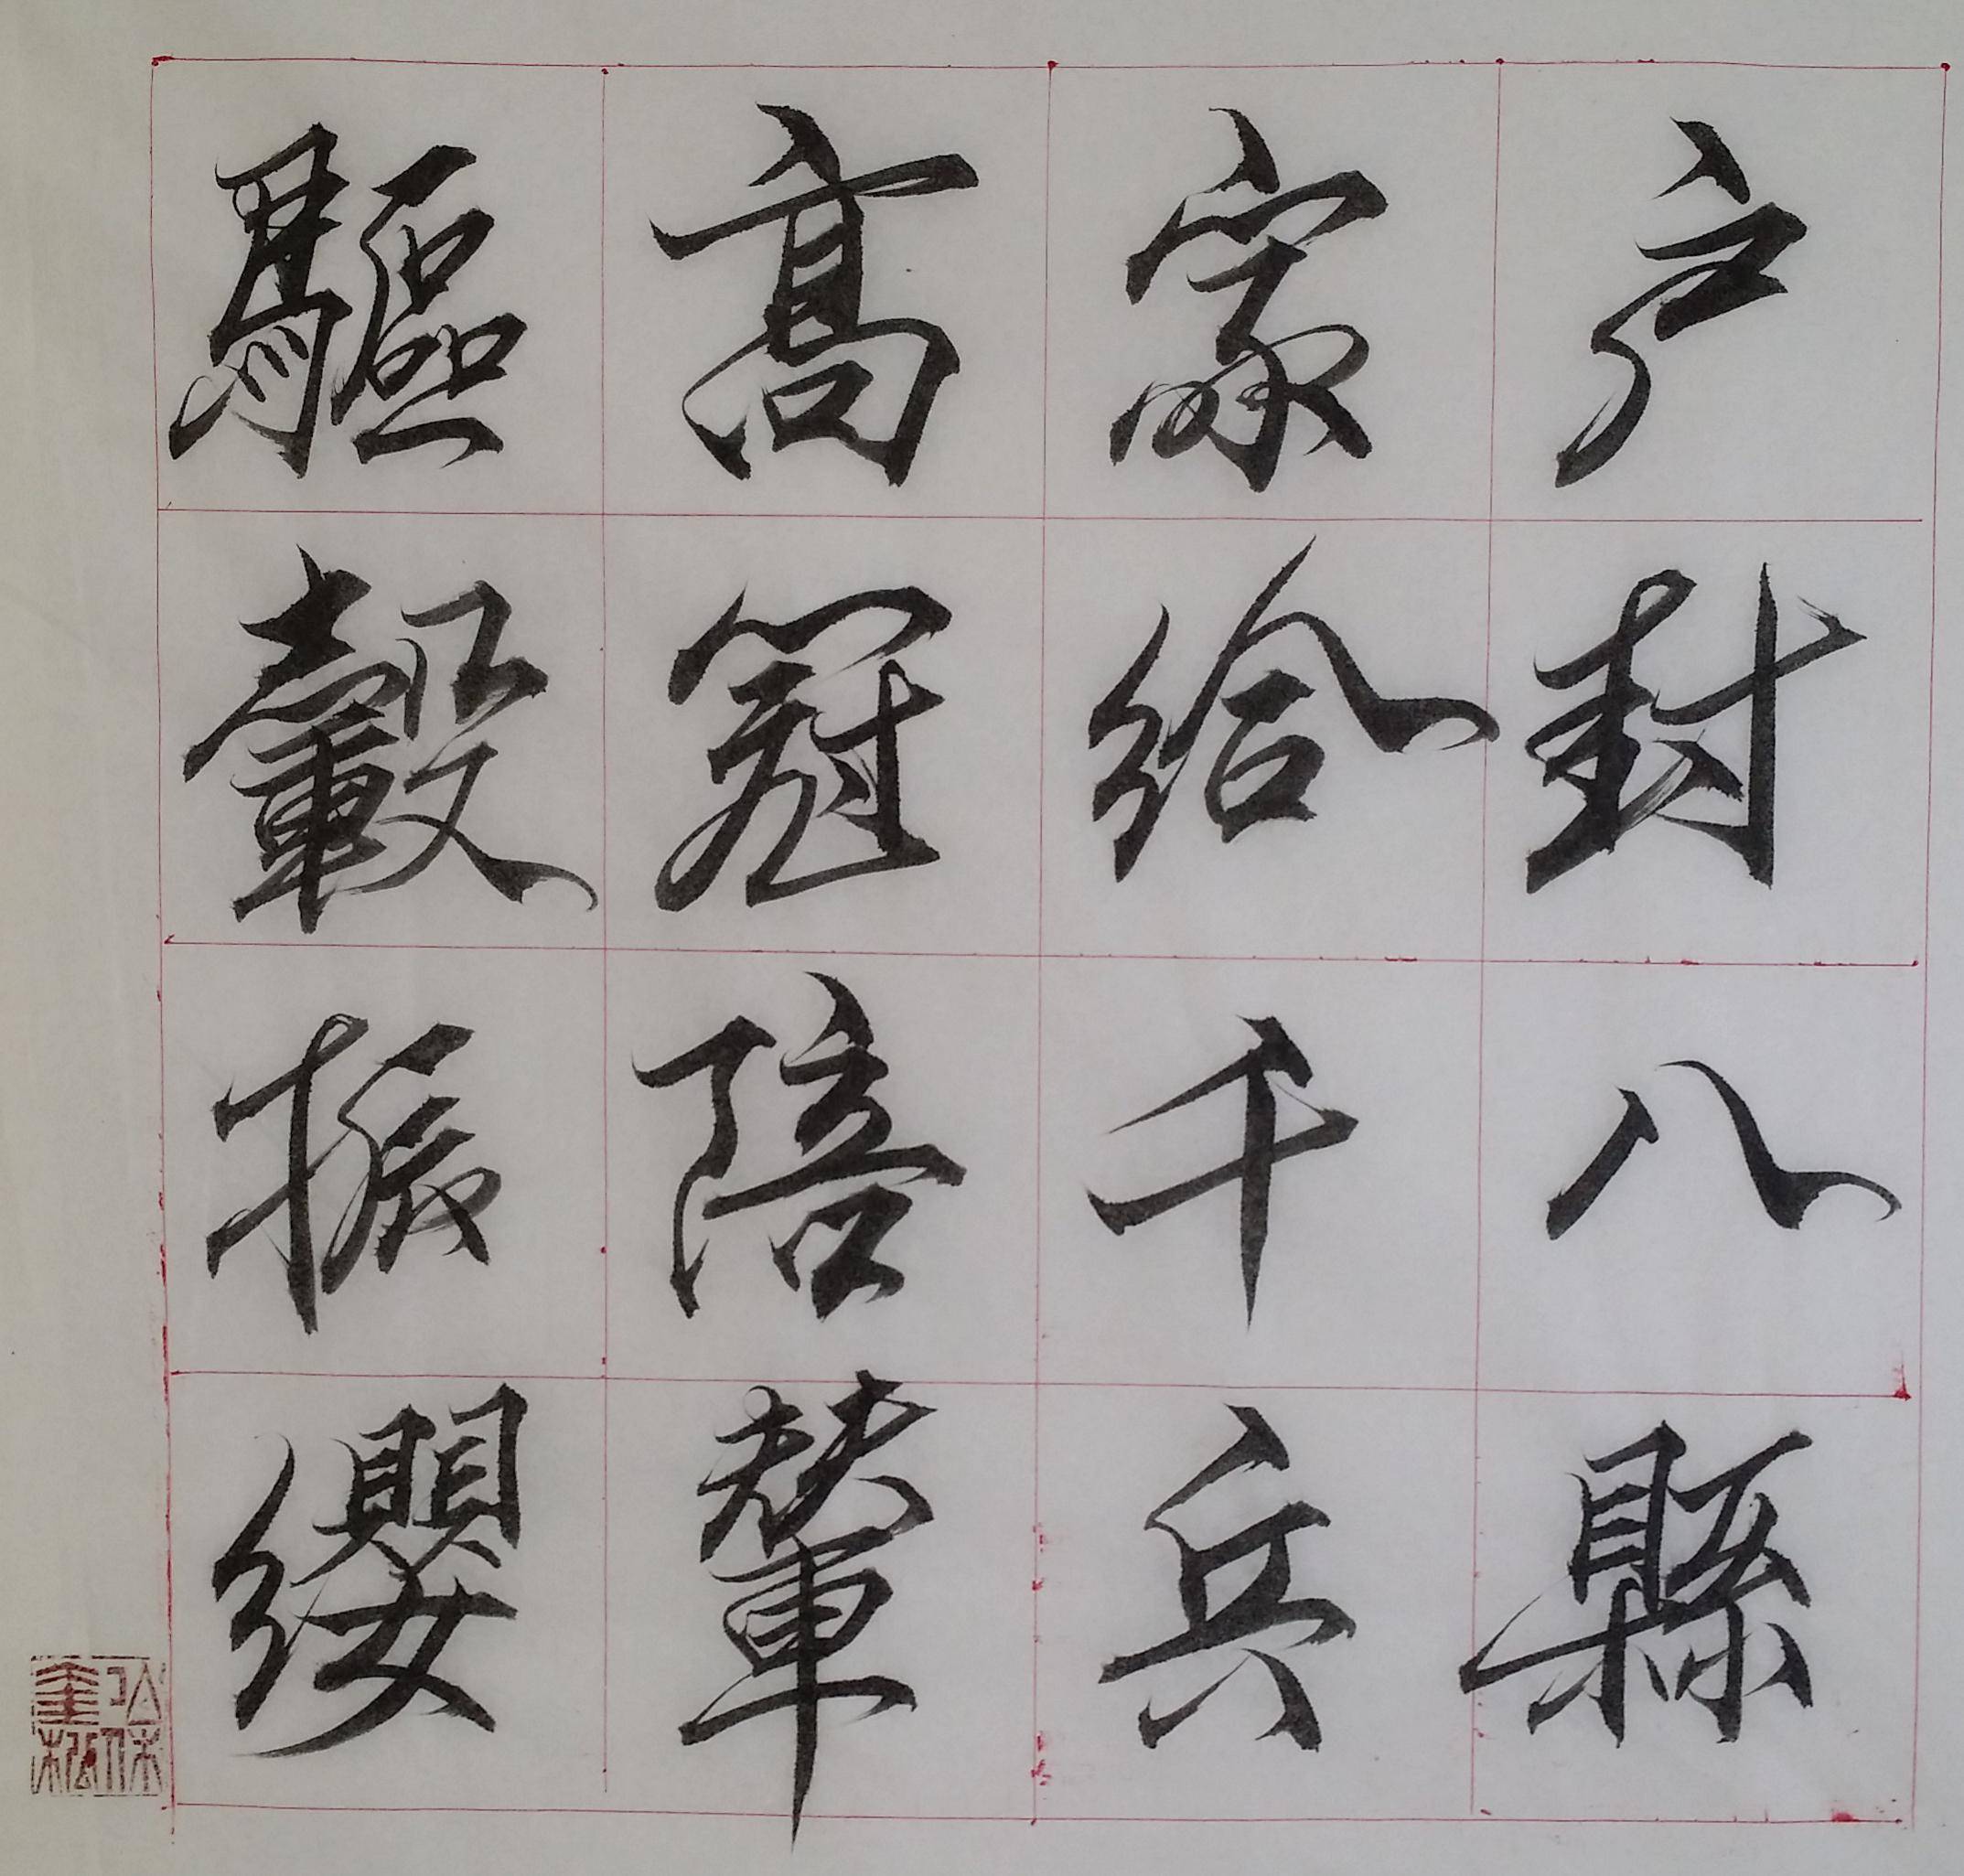 户封八縣
家給千兵
高冠陪輦
驅轂振纓